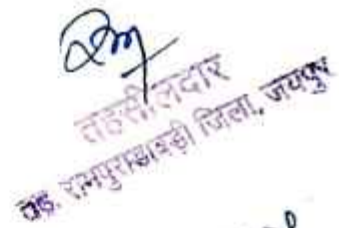 तहसीलदार
तह. रामपुराडाबड़ी जिला, जयपुर